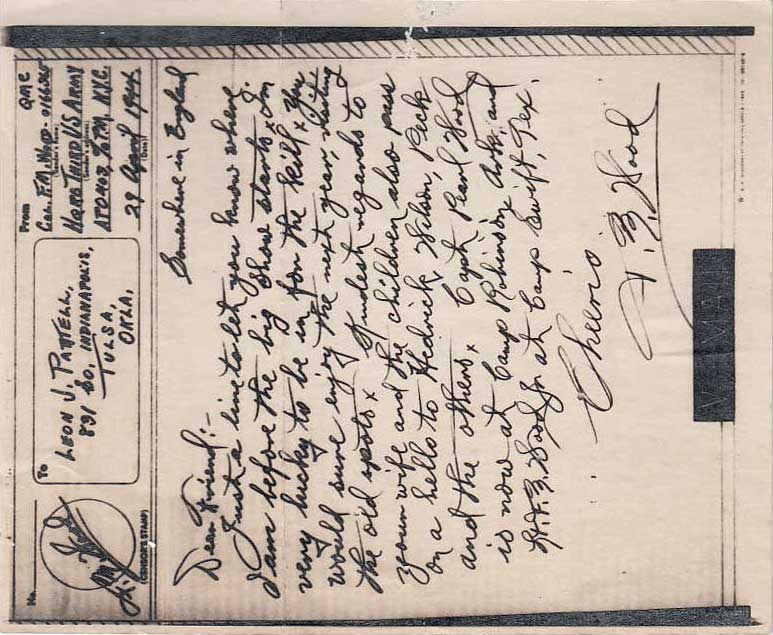 No.
(CENSOR'S STAMP)
To
LEON J. PATTELL,
831 SO. INDIANAPOLIS,
TULSA,
OKLA.
From
QMC
HQRS THIRD US ARMY
APO 403, % PM. N.Y.C.
29 April 1944
(Date)
Somewhere in England
Dear Friend:-
Just a line to let you know where
I am before the big show starts x I'm
very lucky to be in for the kill x You
would sure enjoy the next year, visiting
the old spots x Kindest regards to
your wife and the children also pass
on a hello to Hedrick, Wilson, Peck
and the others x Capt Pearl Wood
is now at Camp Robinson, Ark, and
Wood Jr at Camp Swift, Tex.
Cheerio
Wood
V-MAIL